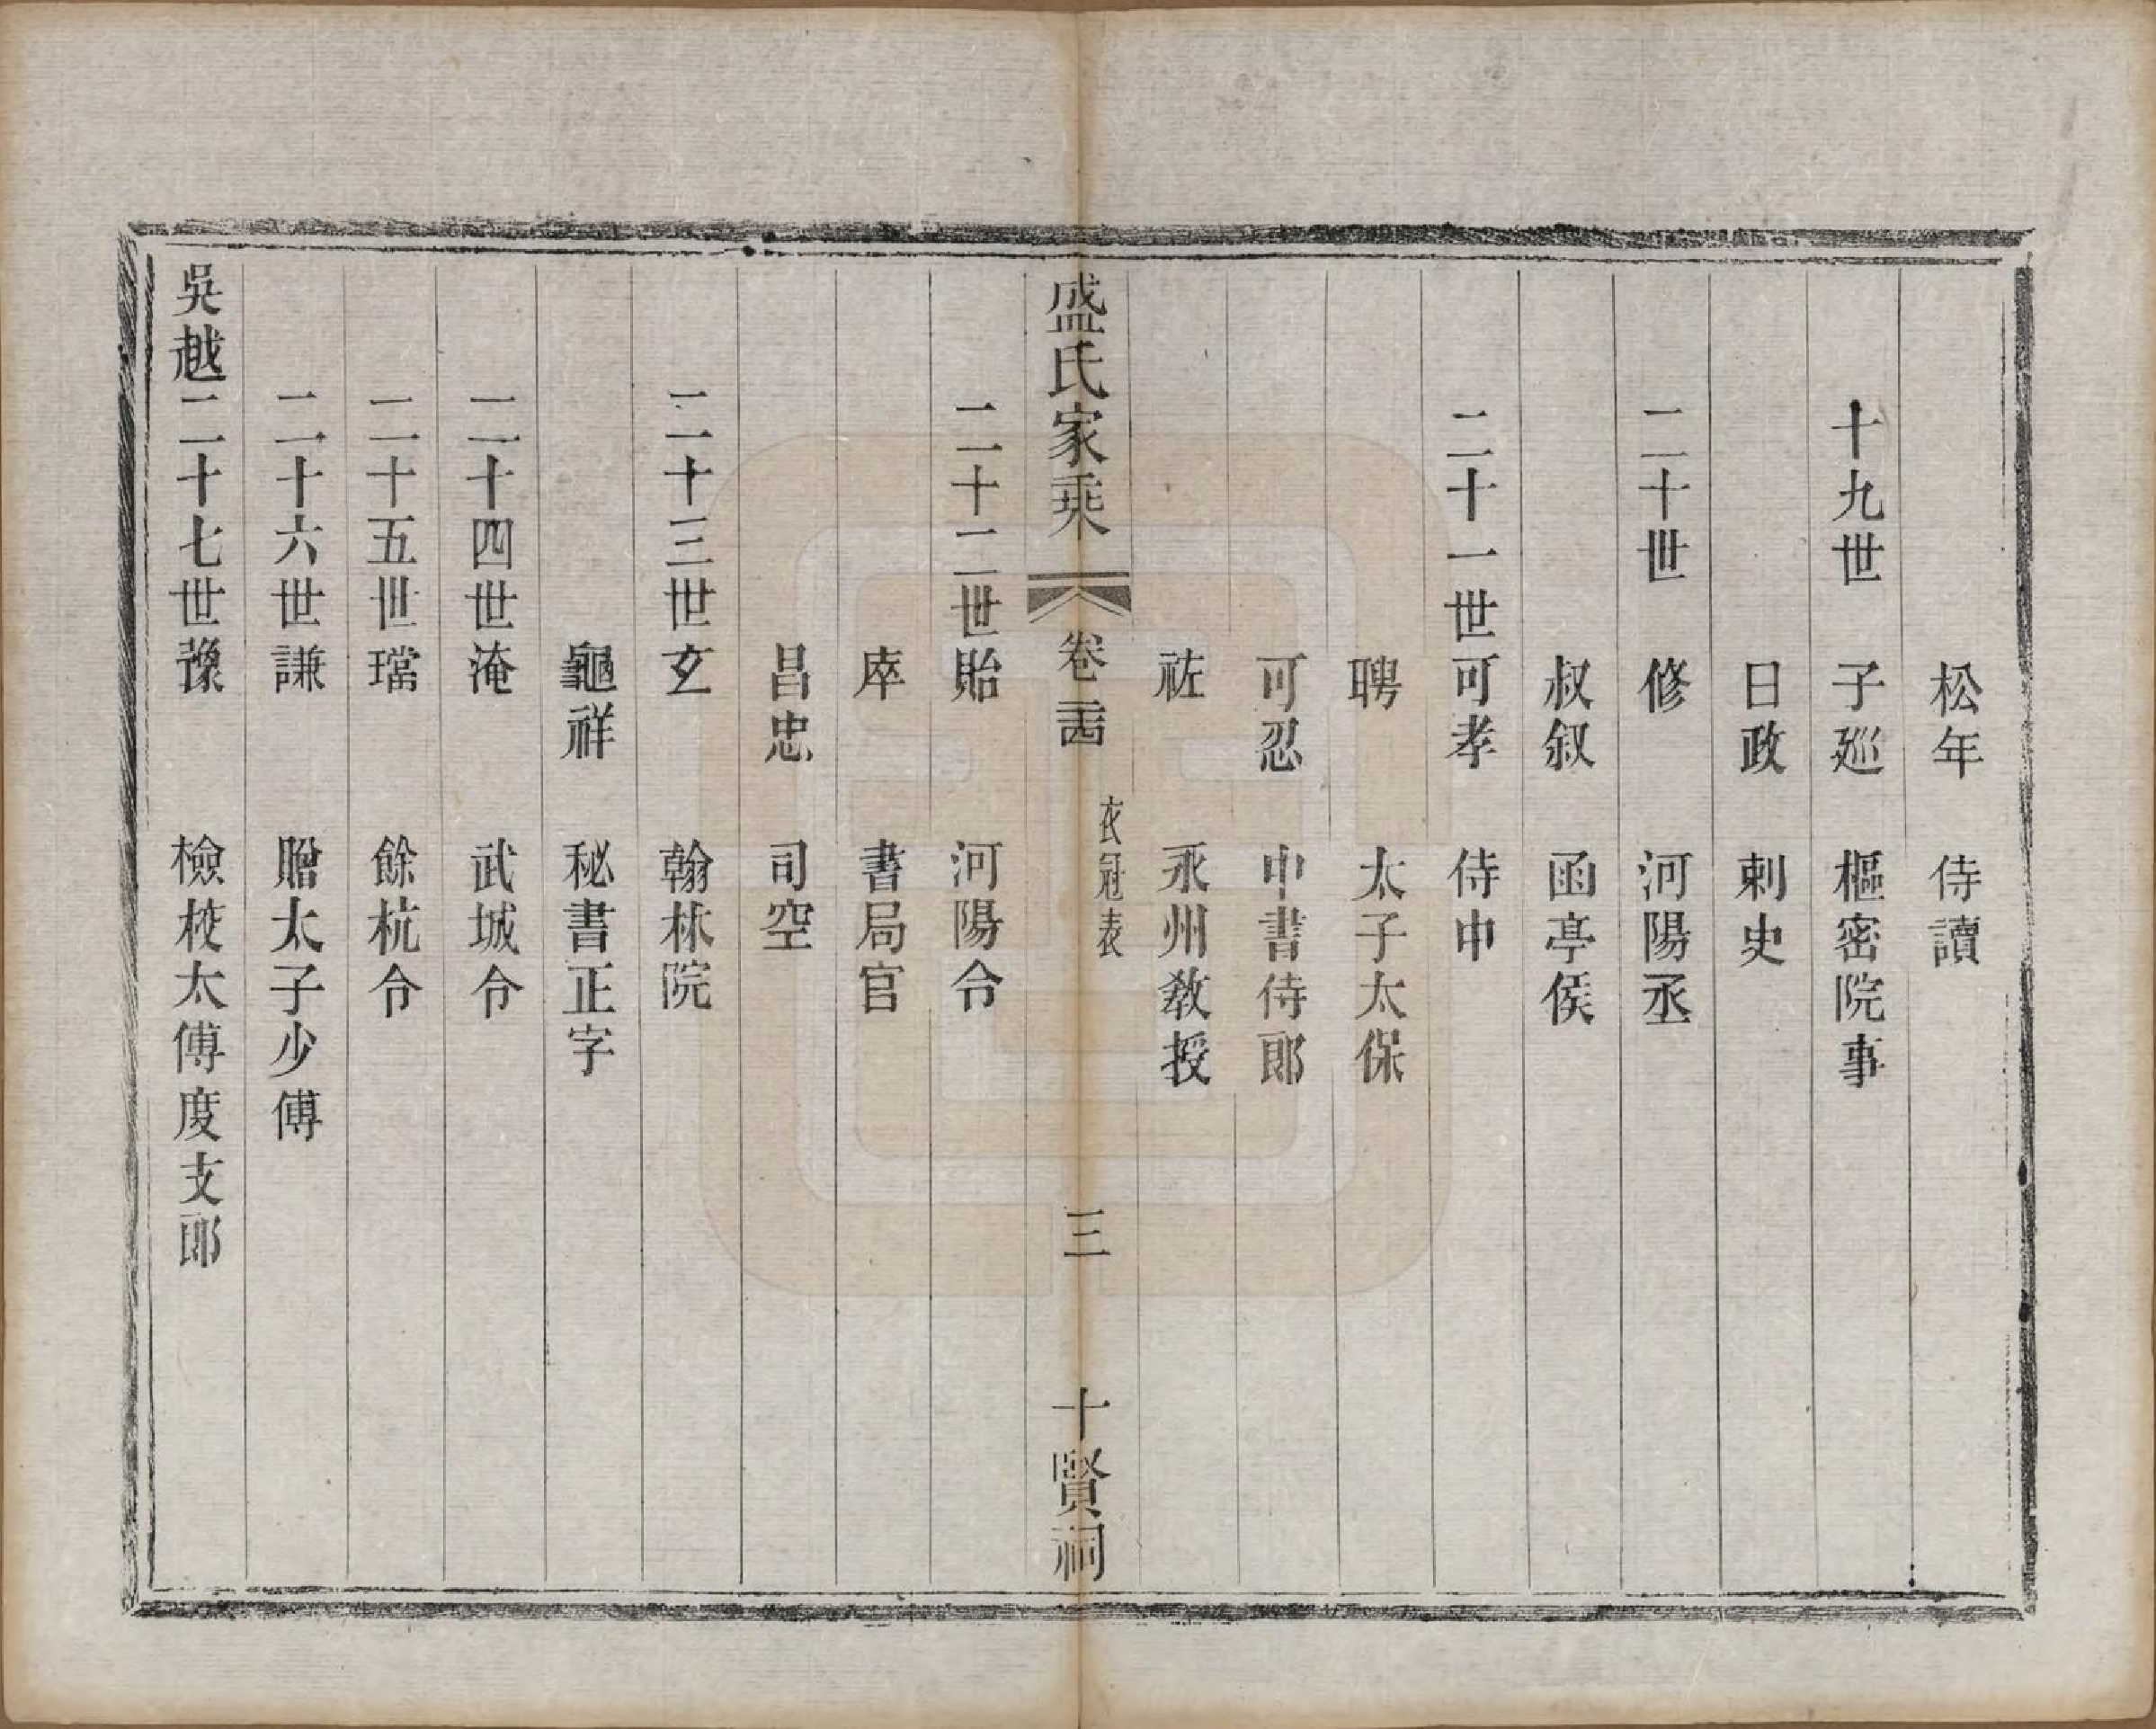 松年 侍讀
十九世 子廵 樞密院事
日政 刺史
二十世 修 河陽丞
叔叙 函亭侯
二十一世 可孝 侍中
聘 太子太保
可忍 中書侍郎
祐 永州教授
盛氏家乘 卷 衣冠表 三 十賢祠
二十二世 貽 河陽令
庠 書局官
昌忠 司空
二十三世 玄 翰林院
龜祥 秘書正字
二十四世 淹 武城令
二十五世 璫 餘杭令
二十六世 謙 贈太子少傅
吳越 二十七世 豫 檢校太傅度支郎